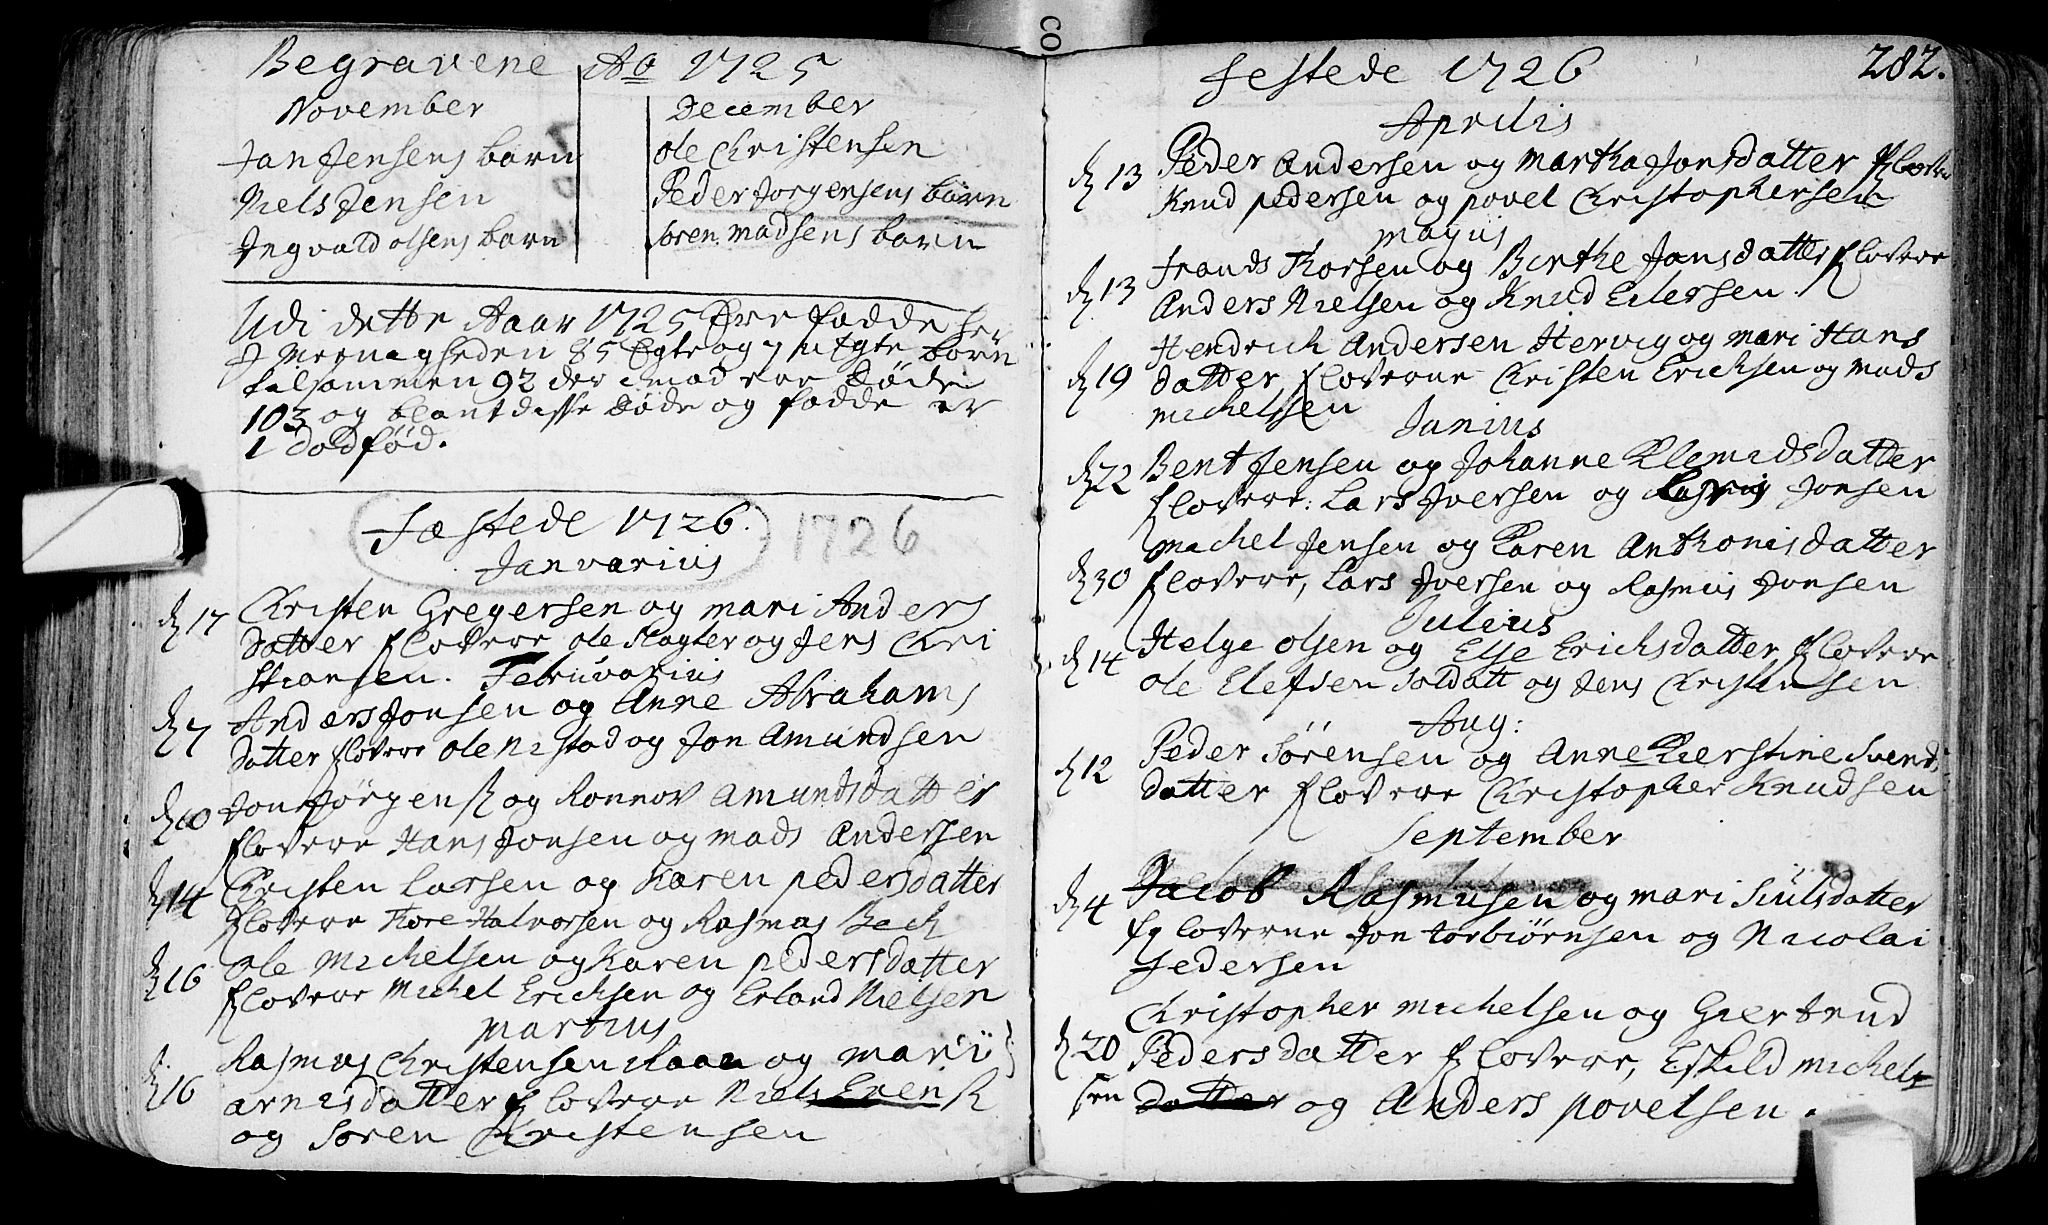 Begravene Ao 1725
November
Jan Jensens barn
Niels Jensen
Ingvald olsens barn
December
ole Christensen
Peder Jørgensens barn
søren madsens barn
Udi dette Aar 1725 Ere fødde her
I Meenagheden 85 Egte og 7 uEgte børn
tilsammen 92 der imod ere døde
103 og blant disse døde og fødde er
1 dødfød.
Fæstede 1726.
1726
Januarius
d 17 Christen Gregersen og mari Anders
datter floverе ole Slagter og Jens Chri
stiansen. Februarius
d 7 Anders Jonsen og Anne Abrahams
datter flovere ole Nistad og Jon Amundsen
d 10 Jon Jørgens. og Ronnov Amundsdatter
flovere Hans Jonsen og mads Andersen
d 14 Christen Larsen og Karen pedersdatter
flovere Thore Halvorsen og Rasmus Bech
d 16 ole Michelsen og Karen pedersdatter
flovere Michel Ericksen og Erland Nielsen
Martius
Rasmus Christensen og mari
d 16 arnisdatter flovere Niels Evens.
og Søren Christensen
282.
festede 1726
Aprilis
d 13 Peder Andersen og Martha Jonsdatter flovere
Knud pedersen og povel Christophersen
Majus
d 13 frands Thorsen og Birthe Jansdatter flovere
Anders Nielsen og Knud Eilersen.
Hendrich Andersen Hervig og mari Hans
d 19 datter floverne Christen Ericksen og Mads
michelsen
Junius
d 22 Bent Jensen og Johanne Klemedsdatter
flovere: Lars Iversen og Rasmus Jonsen
Michel Jensen og Karen Anthonisdatter
d 30 flovere, Lars Iversen og Rasmus Jonsen
Julius
d 14 Helge olsen og Else Ericksdatter flovere
ole Elefsen soldatt og Jens Christensen
Aug:
d 12 Peder Sørensen og Anne Kierstine Svends
datter flovere Christopher Knudsen
September
d 4 Jacob Rasmusen og mari Siulsdatter
floverne Jon torbiørnsen og Nicolai
federsen
Christopher michelsen og Giertrud
d 20 Pedersdatter flovere, Eskild michel
sen datter og Anders povelsen.